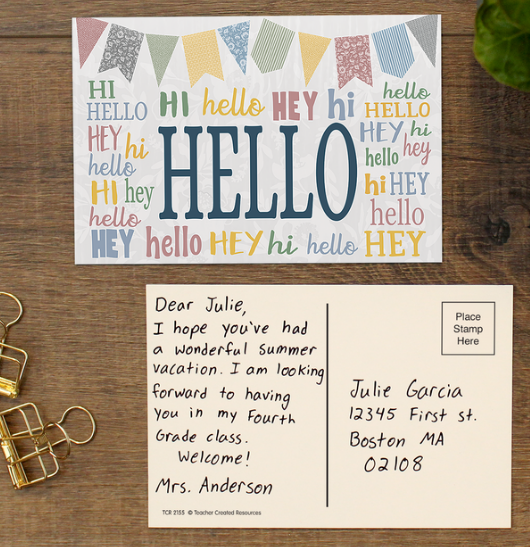 HI
HELLO
HEY
hi
hello
HI hey
hello
HEY
HI hello HEY hi
HELLO
hello HEY hi hello
hello
HELLO
HEY hi
hello hey
hi HEY
hello
HEY
Dear Julie,
I hope you've had
a wonderful summer
vacation. I am looking
forward to having
you in my Fourth
Grade class.
Welcome!
Mrs. Anderson
TCR 2155 © Teacher Created Resources
Place
Stamp
Here
Julie Garcia
12345 First st.
Boston MA
02108